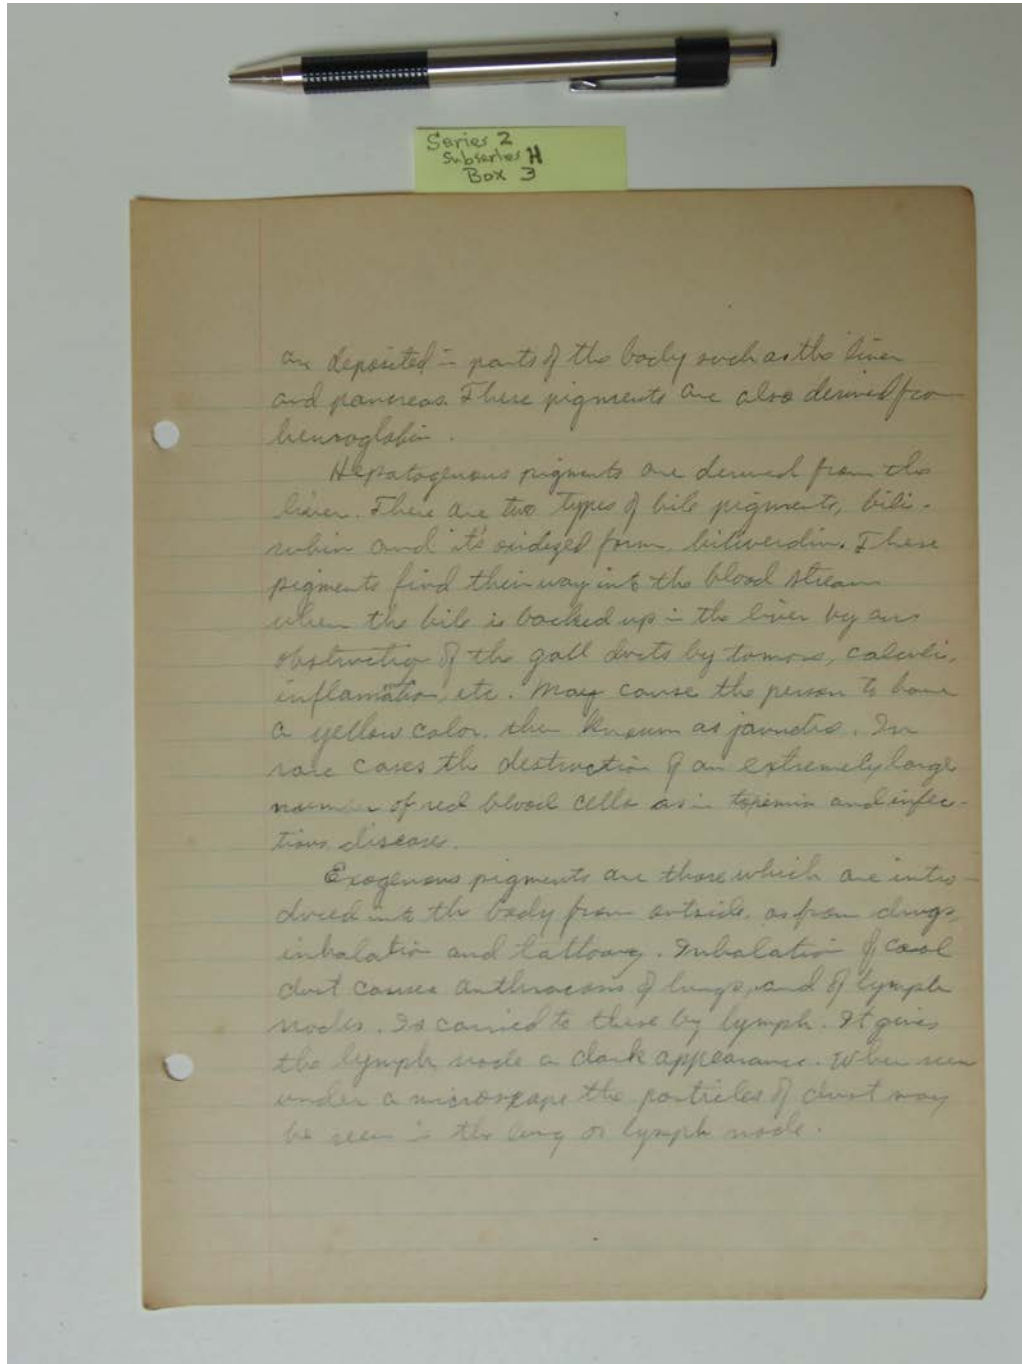 Series 2
Subseries H
Box 3
are deposited in parts of the body such as the liver
and pancreas. These pigments are also derived from
hemoglobin.
Hepatogenous pigments are derived from the
liver. There are two types of bile pigments, bili-
rubin and it's oxidized form, biliverdin. These
pigments find their way into the blood stream
when the bile is backed up in the liver by an
obstruction of the gall ducts by tumors, calculi,
inflamation, etc. May cause the person to have
a yellow color, then known as jaundice. In
rare cases the destruction of an extremely large
number of red blood cells as in toxemia and infec-
tious disease.
Exogenous pigments are those which are intro-
duced into the body from outside, as from drugs,
inhalation and tattowing. Inhalation of coal
dust causes anthracosis of lungs, and of lymph
nodes. Is carried to these by lymph. It gives
the lymph node a dark appearance. When seen
under a microscope the particles of dust may
be seen in the lung or lymph node.